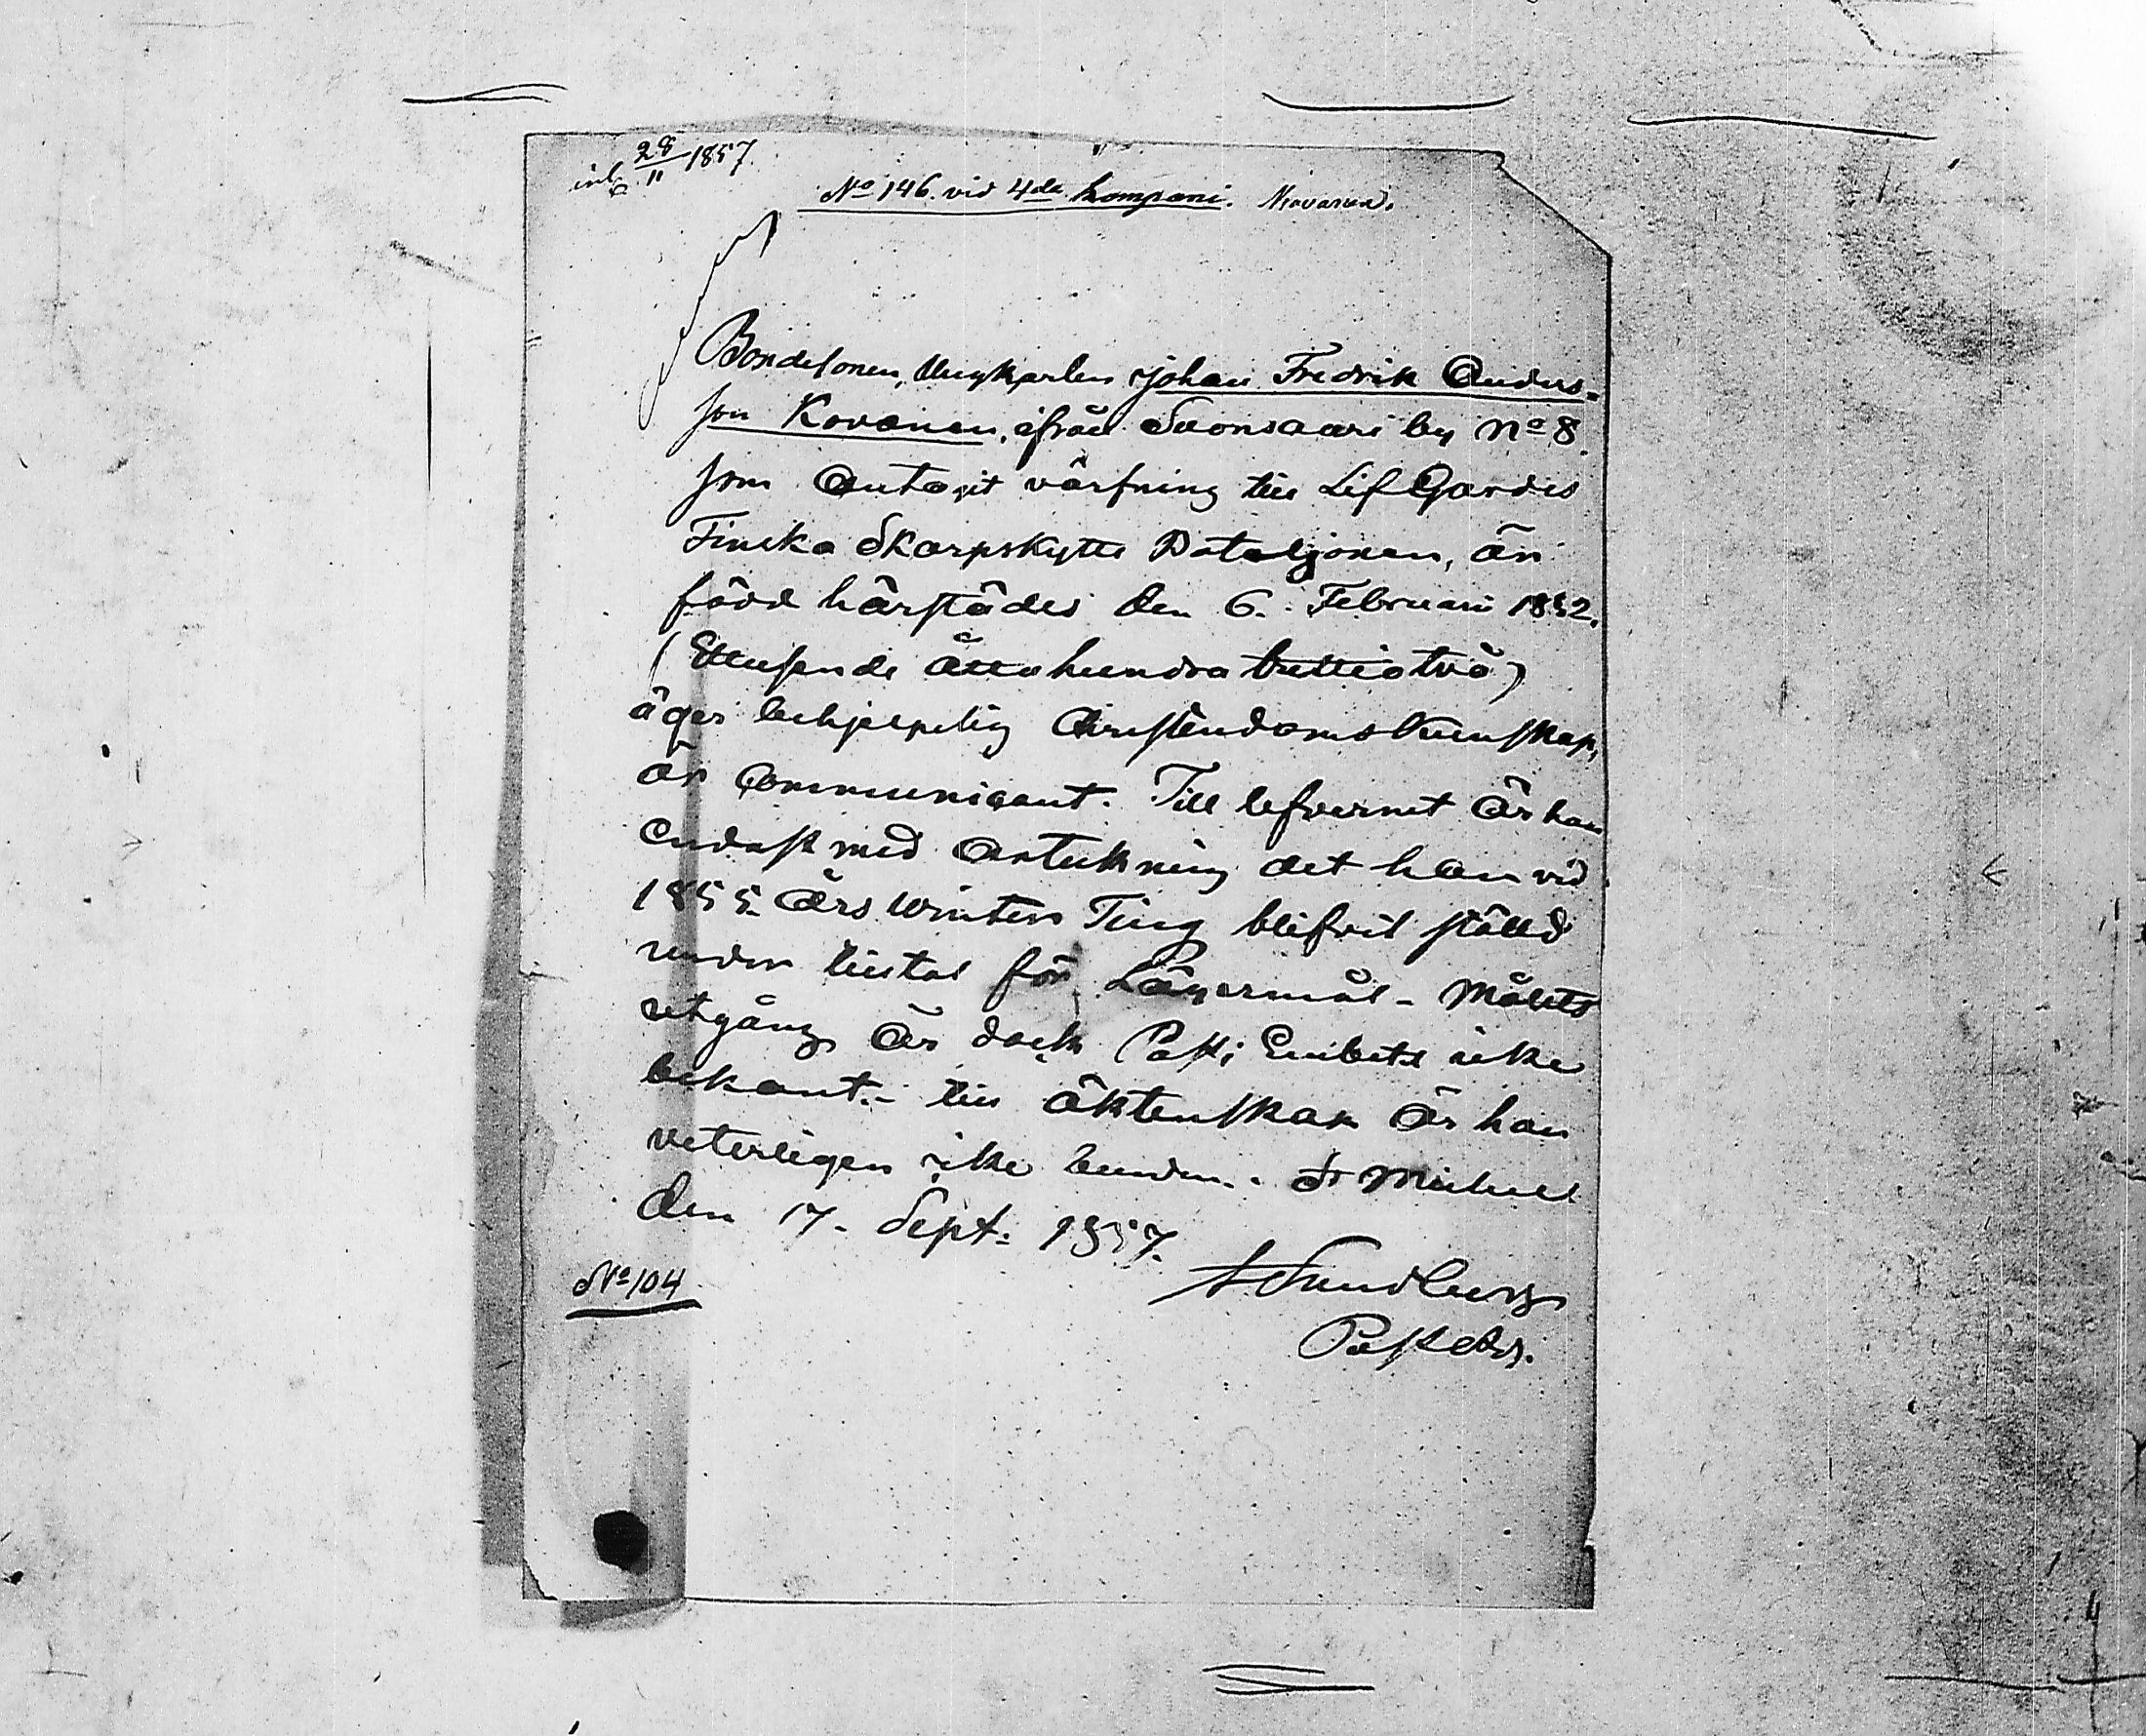 inl. 28/11 1857.
No 146. vid 4de Kompani.
Bondesonen, Ungkarlen Johan Fredrik Anders-
son Kovanen, ifrån Suonsaari by No 8.
som antagit värfning till Lif Gardes
Finska Skarpskytte Bataljonen, är
född härstädes den 6. Februari 1832.
(Ettusende åttahundra trettiotvå)
äger behjelpelig Christendomskunskap,
är Communicant. Till lefvernet är han
endast med anteckning det han vid
1855 års Winter Ting blifvit ställd
under tilltal för Lägersmål - Målets
utgång är dock Past: Embetet icke
bekant. - till äktenskap är han
veterligen icke bunden. St Michel
den 17. Sept: 1857.
Sandberg
Past: Adj.
No 104